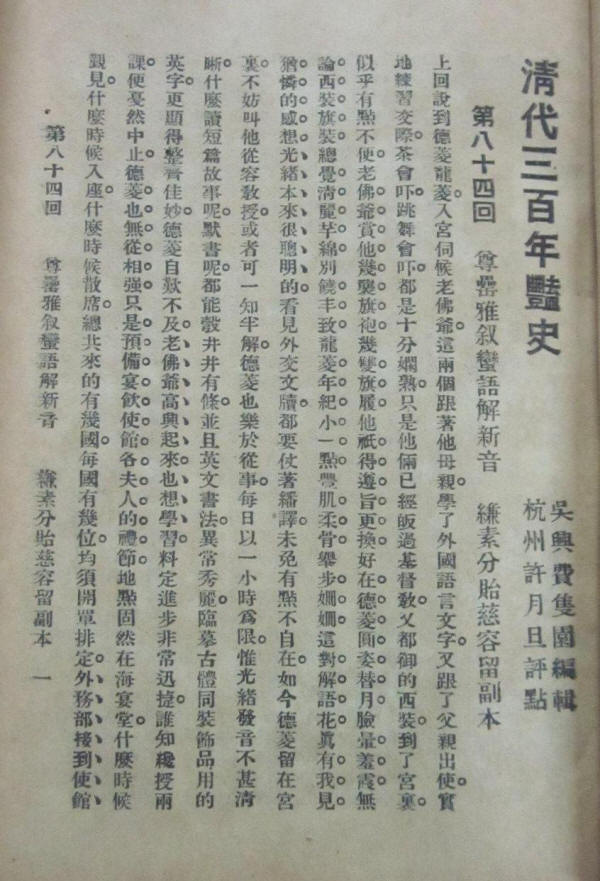 清代三百年豔史
吳興費隻園編輯
杭州許月旦評點
第八十四回　尊罍雅叙蠻語解新音　縑素分貽慈容留副本
上回說到德菱龍菱入宮伺候老佛爺。這兩個跟著他母親學了外國語言文字。又跟了父親出使。實
地練習交際茶會吓。跳舞會吓。都是十分嫻熟。只是他倆已經皈過基督敎。又都御的西裝。到了宮裏。
似乎有點不便。老佛爺賞他幾襲旗袍。幾雙旗履。他祇得遵旨更換。好在德菱圓姿替月。臉暈羞霞。無
論西裝旗裝。總覺清麗芊綿。別饒丰致。龍菱年紀小一點。豐肌柔骨。舉步姍姍。這對解語花。眞有我見
猶憐的感想。光緒本來很聰明的。看見外交文牘。都要仗著繙譯。未免有點不自在。如今德菱留在宮
裏。不妨叫他從容敎授。或者可一知半解。德菱也樂於從事。每日以一小時爲限。惟光緒發音不甚清
晰。什麼讀短篇故事呢。默書呢。都能彀井井有條。並且英文書法。異常秀麗。臨摹古體同裝飾品用的
英字。更顯得整齊佳妙。德菱自歎不及。老佛爺高興起來。也想學習。料定進步非常迅捷。誰知纔授兩
課。便戛然中止。德菱也無從相强。只是預備宴飲使館各夫人的禮節。地點固然在海宴堂。什麼時候
覲見。什麼時候入座。什麼時候散席。總共來的有幾國。每國有幾位。均須開單排定。外務部接到使館
第八十四回　尊罍雅叙蠻語解新音　縑素分貽慈容留副本　一